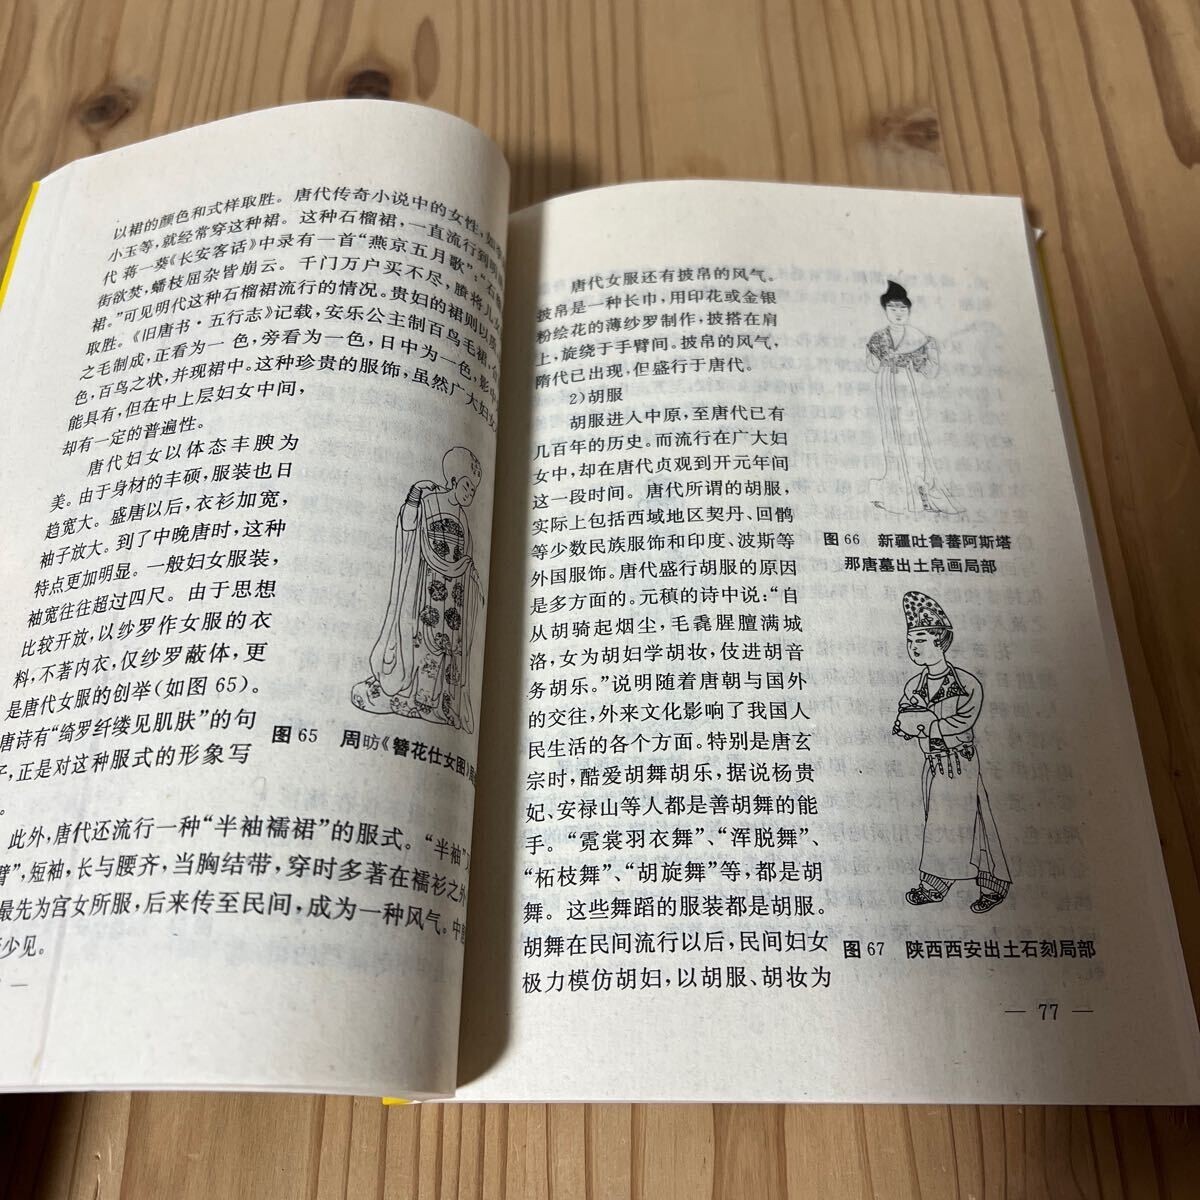 以裙的颜色和式样取胜。唐代传奇小说中的女性，如
小玉等，就经常穿这种裙。这种石榴裙，一直流行到明
代 蒋一葵《长安客话》中录有一首“燕京五月歌”：“石
街欲焚，蟠枝屈杂皆崩云。千门万户买不尽，賸将儿女
裙。”可见明代这种石榴裙流行的情况。贵妇的裙则以质
取胜。《旧唐书·五行志》记载，安乐公主制百鸟毛裙，
之毛制成，正看为一色，旁看为一色，日中为一色，影中
色，百鸟之状，并现裙中。这种珍贵的服饰，虽然广大妇女
能具有，但在中上层妇女中间，
却有一定的普遍性。
唐代妇女以体态丰腴为
美。由于身材的丰硕，服装也日
趋宽大。盛唐以后，衣衫加宽，
袖子放大。到了中晚唐时，这种
特点更加明显。一般妇女服装，
袖宽往往超过四尺。由于思想
比较开放，以纱罗作女服的衣
料，不著内衣，仅纱罗蔽体，更
是唐代女服的创举（如图 65）。
唐诗有“绮罗纤缕见肌肤”的句
子，正是对这种服式的形象写
。
图 65 周昉《簪花仕女图》
此外，唐代还流行一种“半袖襦裙”的服式。“半袖”
臂”，短袖，长与腰齐，当胸结带，穿时多著在襦衫之外
最先为宫女所服，后来传至民间，成为一种风气。中
少见。
唐代女服还有披帛的风气。
披帛是一种长巾，用印花或金银
粉绘花的薄纱罗制作，披搭在肩
上，旋绕于手臂间。披帛的风气，
隋代已出现，但盛行于唐代。
2)胡服
胡服进入中原，至唐代已有
几百年的历史。而流行在广大妇
女中，却在唐代贞观到开元年间
这一段时间。唐代所谓的胡服，
实际上包括西域地区契丹、回鹘
等少数民族服饰和印度、波斯等
外国服饰。唐代盛行胡服的原因
是多方面的。元稹的诗中说：“自
从胡骑起烟尘，毛毳腥膻满城
洛，女为胡妇学胡妆，伎进胡音
务胡乐。”说明随着唐朝与国外
的交往，外来文化影响了我国人
民生活的各个方面。特别是唐玄
宗时，酷爱胡舞胡乐，据说杨贵
妃、安禄山等人都是善胡舞的能
手。“霓裳羽衣舞”、“浑脱舞”、
“柘枝舞”、“胡旋舞”等，都是胡
舞。这些舞蹈的服装都是胡服。
胡舞在民间流行以后，民间妇女
极力模仿胡妇，以胡服、胡妆为
图 66 新疆吐鲁蕃阿斯塔
那唐墓出土帛画局部
图 67 陕西西安出土石刻局部
— 77 —